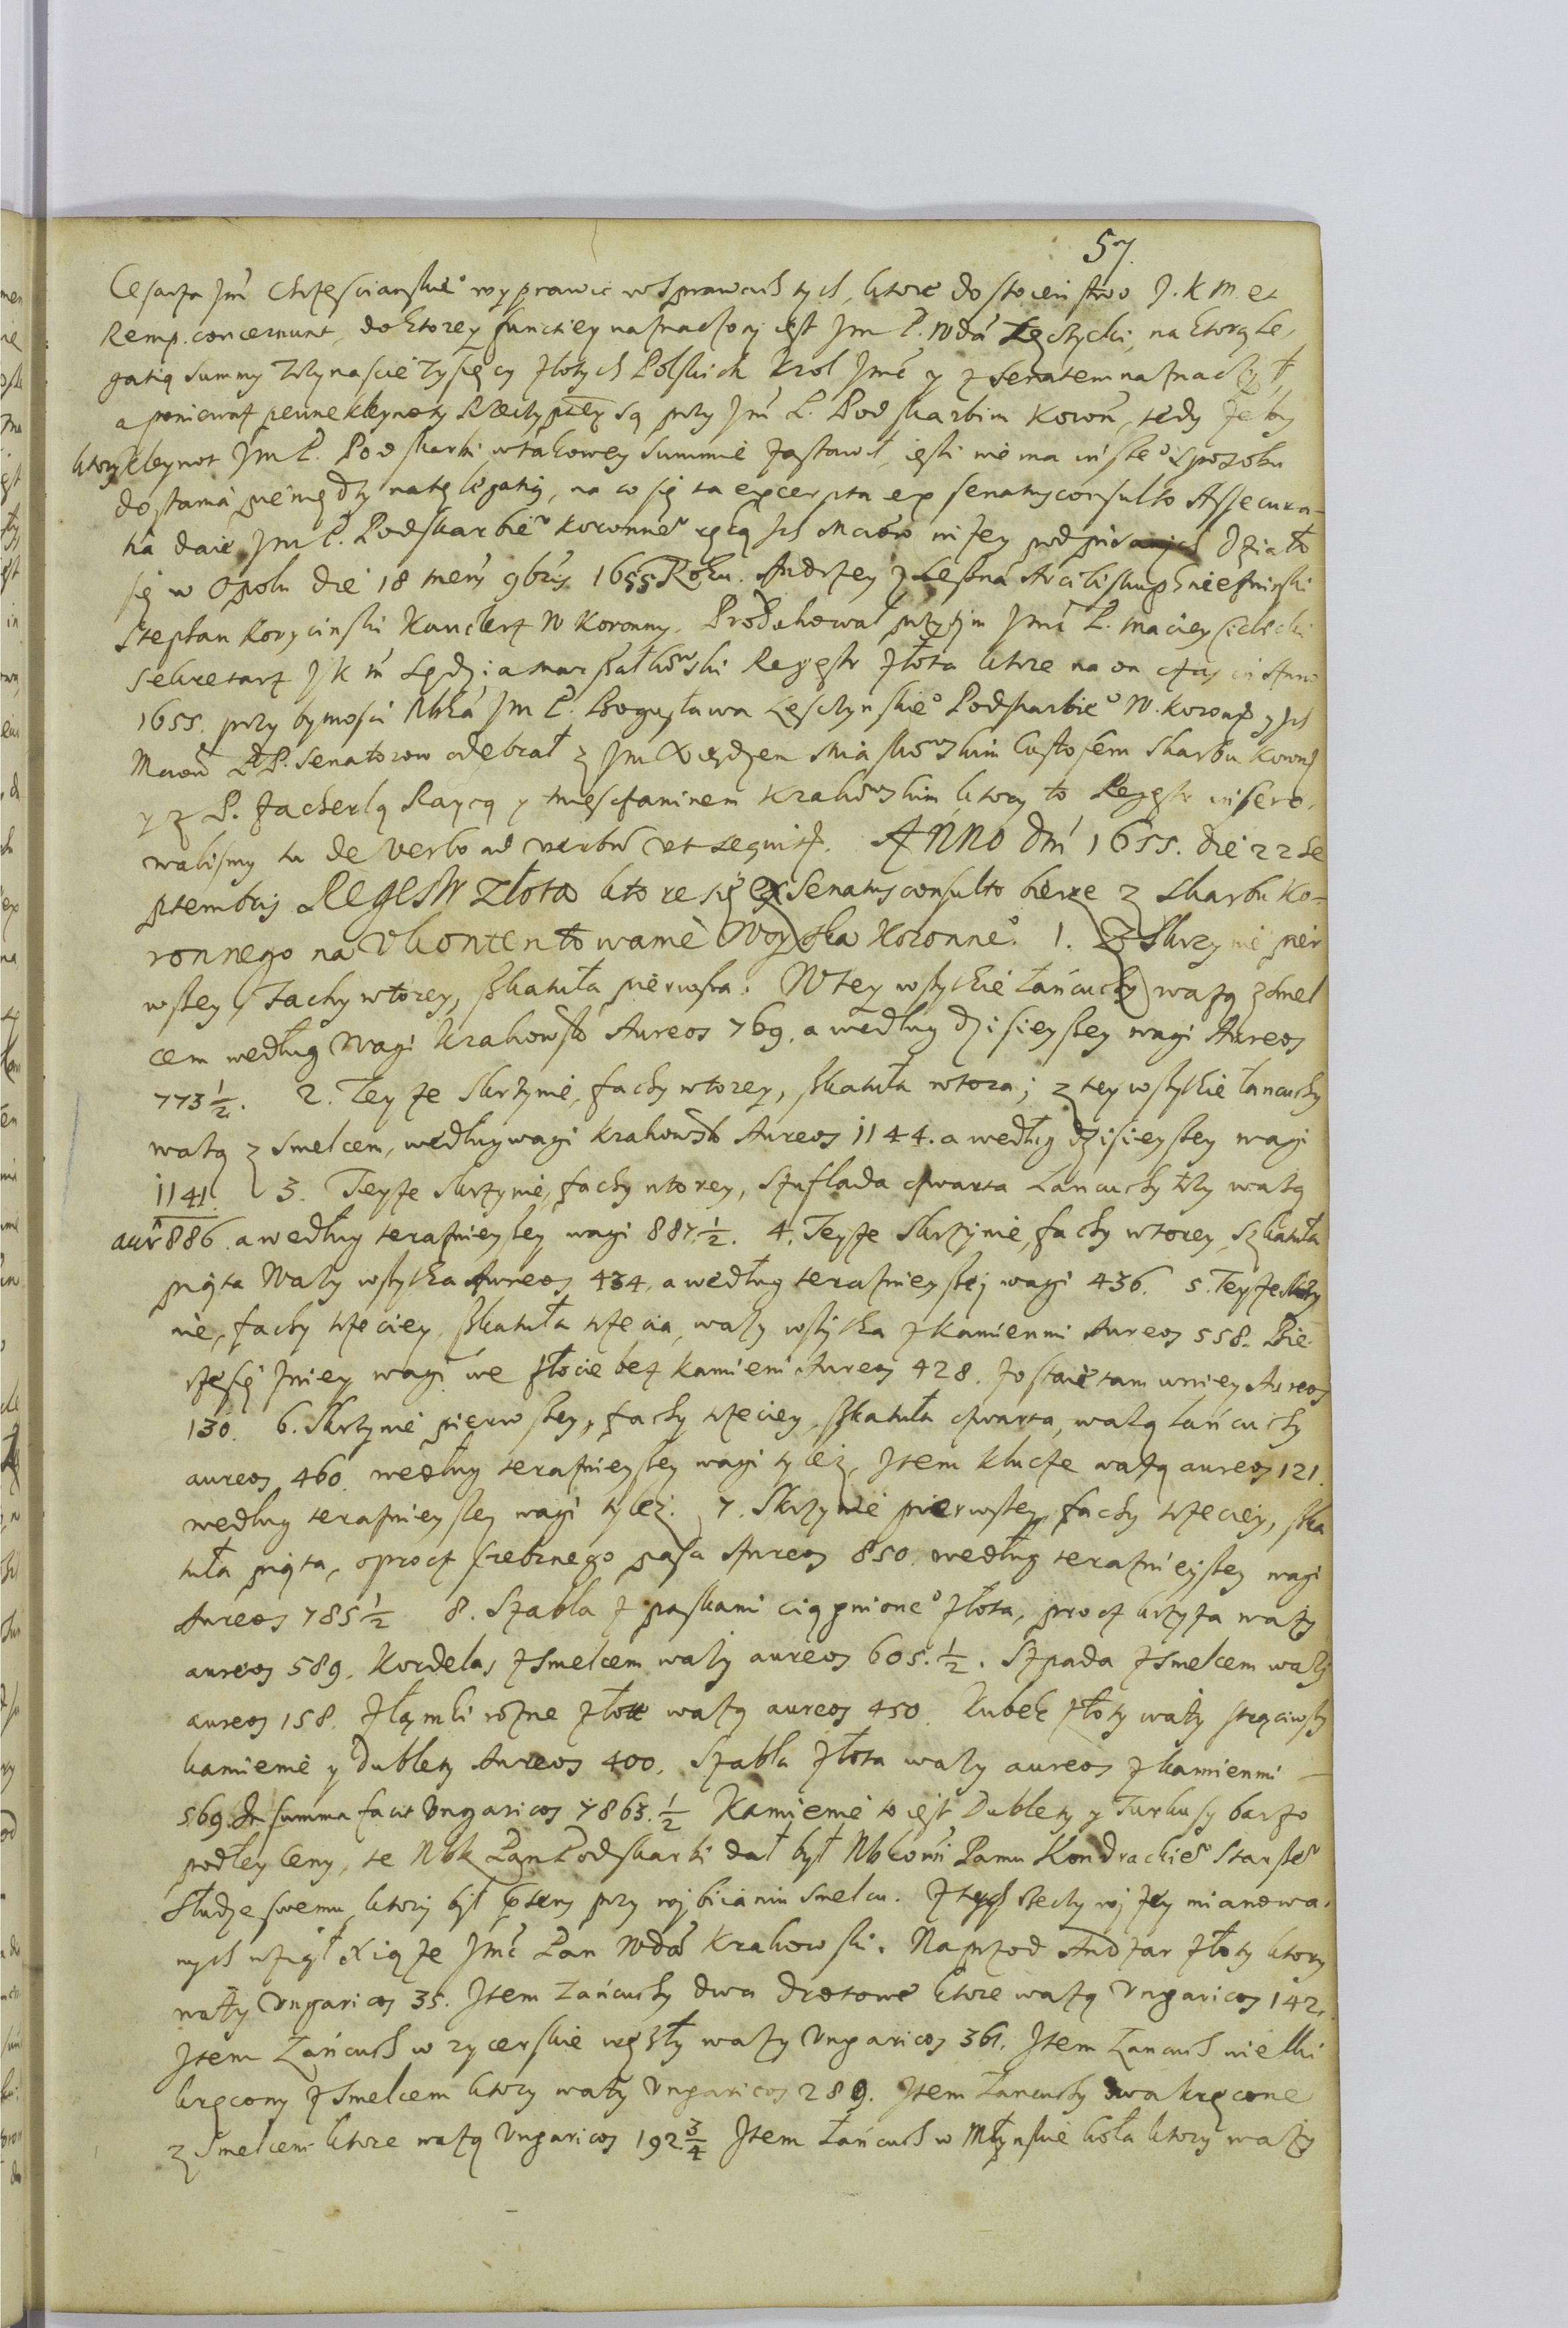 57.
Cesarza Jmći Chrzescianskie° wyprawic w sprawach tych, ktore dostoieństwo J. K. M. et
Remp. concernunt, do ktorey functiey naznaczony iest Jm P. Wdá Łęczycki, na ktorą Le-
gatią summy trzynascie Tysięcy złotych Polskich Krol Jmć y z senatem naznaczył,
a poniewaz pewne kleynoty Rzeczyptey są przy Jm P. Podskarbim Koroń, tedy zeby
ktory kleynot Jm P. Podskarbi w takowey summie zastawił, iesli nie ma insze° sposobu
dostania pieniędzy na tę legatią, na co się ta excerpta ex senatusconsulto Assecura-
tia daie Jm P. Podskarbie° Koronne° ręką Jch Mciow nizey podpisanych Działo
się w Opolu die 18 mens 9bris 1655 Roku. Andrzey z Leszna Arcibiskup Gnieznienski
Stephan Korycinski Kanclerz W Koronny. Produkował przytym Jmć P. Maciey Cichocki
Sekretarz J K M Sędzia Marszałkowski Regestr złota ktore na on czas in Anno
1655. przy bytnosci Nbká Jm P. Bogusława Leszczynskie° Podskarbie° W. Koronń y Jch
Mciow PP. Senatorow odebrał z Jm Xiędzem Miaskowskim Custosem Skarbu Koronń
y z P. Zacherlą Raycą y Miesczaninem Krakowskim ktory to Regestr insero-
walismy tu de verbo ad verbum ut sequitr. Anno Dni 1655. die 22 Se
ptembris Regestr złota ktore się ex Senatusconsulto bierze z Skarbu Ko-
ronnego na Ukontentowanie Woyska Koronne°. 1. Z Skrzynie pier
wszey, Fachy wtorey, szkatuła pierwsza. W tey wszytkie łańcuchy wazą z smel
cem według Wagi Krakowsk Aureos 769. a według dzisieyszey wagi Aureos
773 1/2. 2. Teyze Skrzynie, fachy wtorey, szkatuła wtora; z tey wszytkie łancuchy
wazą z smelcem, według wagi Krakowsk Aureos 1144. a według dzisieyszey wagi
1141. 3. Teyze skrzynie, fachy wtorey, szuflada czwarta Łancuchy trzy wazą
aur 886. a według teraznieyszey wagi 887 1/2. 4. Teyze Skrzynie, fachy wtorey, szkatuła
piąta Wazy wszytka Aureos 434, a według terazniejszej wagi 436. 5. Teyze skrzy
nie, fachy trzeciey, szkatuła trzecia, wazy wszytka z kamienmi Aureos 558. Bie
rze się zniey wagi we złocie bez kamieni Aureos 428. zostaie tam w niey Aureos
130. 6. Skrzynie pierwszey, fachy trzeciey, szkatuła czwarta, wazą łańcuchy
aureos 460. według terazniejszey wagi tylez, Jtem klucze wazą aureos 121.
według terazniejszey wagi tylez. 7. Skrzynie pierwszey, fachy trzeciey, szka
tuła piąta, oprocz srebrnego pasa Aureos 850. według terazniejszey wagi
Aureos 785 1/2 8. Szabla z paskami ciągnione° złota, procz krzyza wazy
aureos 589. Kordelas z smelcem wazy aureos 605. 1/2. Szpada z smelcem wazy
aureos 158. Złomki rozne złote wazą aureos 450. Kubek złoty wazy strąciwszy
kamienie y Dublety Aureos 400. Szabla złota wazy aureos z kamienmi
569. In summa facit Ungaricos 7863. 1/2 Kamienie to iest Dublety y Turkusy barzo
podłey ceny, te Nbk Pan Podskarbi dał był Nbkowi Panu Kondrackie° Starsze°
Słudze swemu, ktory był p̄tem przy wybiianiu smelcu. Z tych rzeczy wyzey mianowa-
nych wziął Xiąze Jmć Pan Wdá Krakowski. Naprzod Andzar złoty ktory
wazy Ungaricos 35. Jtem Łańcuchy dwa drotowe ktore wazą Ungaricos 142.
Jtem Łańcuch w rycerskie węzły wazy Ungaricos 361. Jtem Łancuch wielki
kręcony z smelcem ktory wazy Ungaricos 289. Jtem Łancuchy dwa kręcone
z smelcem ktore wazą Ungaricos 192 3/4 Jtem Łańcuch w Młynskie koła ktory wazy